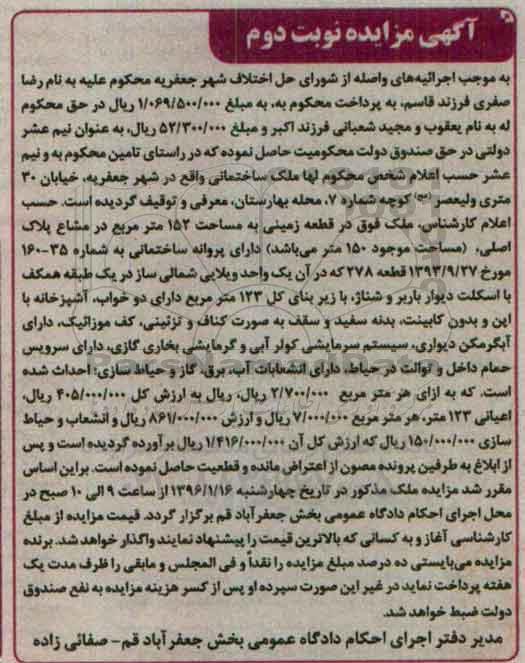 آگهی مزایده نوبت دوم
به موجب اجرائیه‌های واصله از شورای حل اختلاف شهر جعفریه محکوم علیه به نام رضا
صفری فرزند قاسم، به پرداخت محکوم به، به مبلغ ۱/۰۶۹/۵۰۰/۰۰۰ ریال در حق محکوم
له به نام یعقوب و مجید شعبانی فرزند اکبر و مبلغ ۵۲/۳۰۰/۰۰۰ ریال، به عنوان نیم عشر
دولتی در حق صندوق دولت محکومیت حاصل نموده که در راستای تامین محکوم به و نیم
عشر حسب اعلام شخص محکوم لها ملک ساختمانی واقع در شهر جعفریه، خیابان ۳۰
متری ولیعصر (عج) کوچه شماره ۷، محله بهارستان، معرفی و توقیف گردیده است. حسب
اعلام کارشناس، ملک فوق در قطعه زمینی به مساحت ۱۵۲ متر مربع در مشاع پلاک
اصلی، (مساحت موجود ۱۵۰ متر می‌باشد) دارای پروانه ساختمانی به شماره ۳۵-۱۶۰
مورخ ۱۳۹۳/۹/۲۷ قطعه ۲۷۸ که در آن یک واحد ویلایی شمالی ساز در یک طبقه همکف
با اسکلت دیوار باربر و شناژ، با زیر بنای کل ۱۲۳ متر مربع دارای دو خواب، آشپزخانه با
اپن و بدون کابینت، بدنه سفید و سقف به صورت کناف و تزئینی، کف موزائیک، دارای
آبگرمکن دیواری، سیستم سرمایشی کولر آبی و گرمایشی بخاری گازی، دارای سرویس
حمام داخل و توالت در حیاط، دارای انشعابات آب، برق، گاز و حیاط سازی؛ احداث شده
است. که به ازای هر متر مربع ۲/۷۰۰/۰۰۰ ریال، ریال به ارزش کل ۴۰۵/۰۰۰/۰۰۰ ریال،
اعیانی ۱۲۳ متر، هر متر مربع ۷/۰۰۰/۰۰۰ ریال و ارزش ۸۶۱/۰۰۰/۰۰۰ ریال و انشعاب و حیاط
سازی ۱۵۰/۰۰۰/۰۰۰ ریال که ارزش کل آن ۱/۴۱۶/۰۰۰/۰۰۰ ریال برآورده گردیده است و پس
از ابلاغ به طرفین پرونده مصون از اعتراض مانده و قطعیت حاصل نموده است. براین اساس
مقرر شد مزایده ملک مذکور در تاریخ چهارشنبه ۱۳۹۶/۱/۱۶ از ساعت ۹ الی ۱۰ صبح در
محل اجرای احکام دادگاه عمومی بخش جعفرآباد قم برگزار گردد. قیمت مزایده از مبلغ
کارشناسی آغاز و به کسانی که بالاترین قیمت را پیشنهاد نمایند واگذار خواهد شد. برنده
مزایده می‌بایستی ده درصد مبلغ مزایده را نقداً و فی المجلس و مابقی را ظرف مدت یک
هفته پرداخت نماید در غیر این صورت سپرده او پس از کسر هزینه مزایده به نفع صندوق
دولت ضبط خواهد شد.
مدیر دفتر اجرای احکام دادگاه عمومی بخش جعفرآباد قم - صفائی زاده